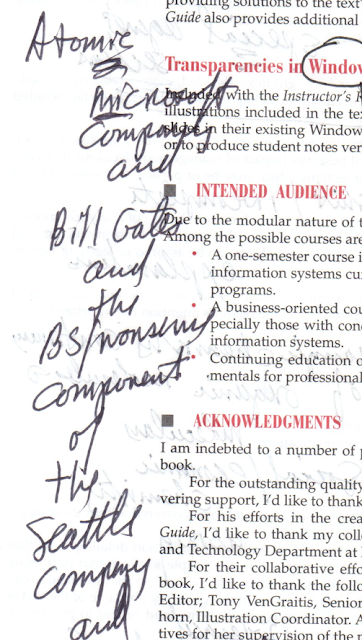 providing solutions to the text
Guide also provides additional
Transparencies in Window
Included with the Instructor's R
illustrations included in the tex
slides in their existing Window
or to produce student notes ver
INTENDED AUDIENCE
Due to the modular nature of t
Among the possible courses are
• A one-semester course i
information systems cu
programs.
• A business-oriented cou
pecially those with con
information systems.
• Continuing education o
mentals for professional
ACKNOWLEDGMENTS
I am indebted to a number of p
book.
For the outstanding quality
vering support, I'd like to thank
For his efforts in the crea
Guide, I'd like to thank my coll
and Technology Department at
For their collaborative effo
book, I'd like to thank the follo
Editor; Tony VenGraitis, Senior
horn, Illustration Coordinator. A
tives for her supervision of the
Atomic
Microsoft
Company
and
Bill Gates
and
the
BS/nonsense
component
of
the
Seattle
Company
and